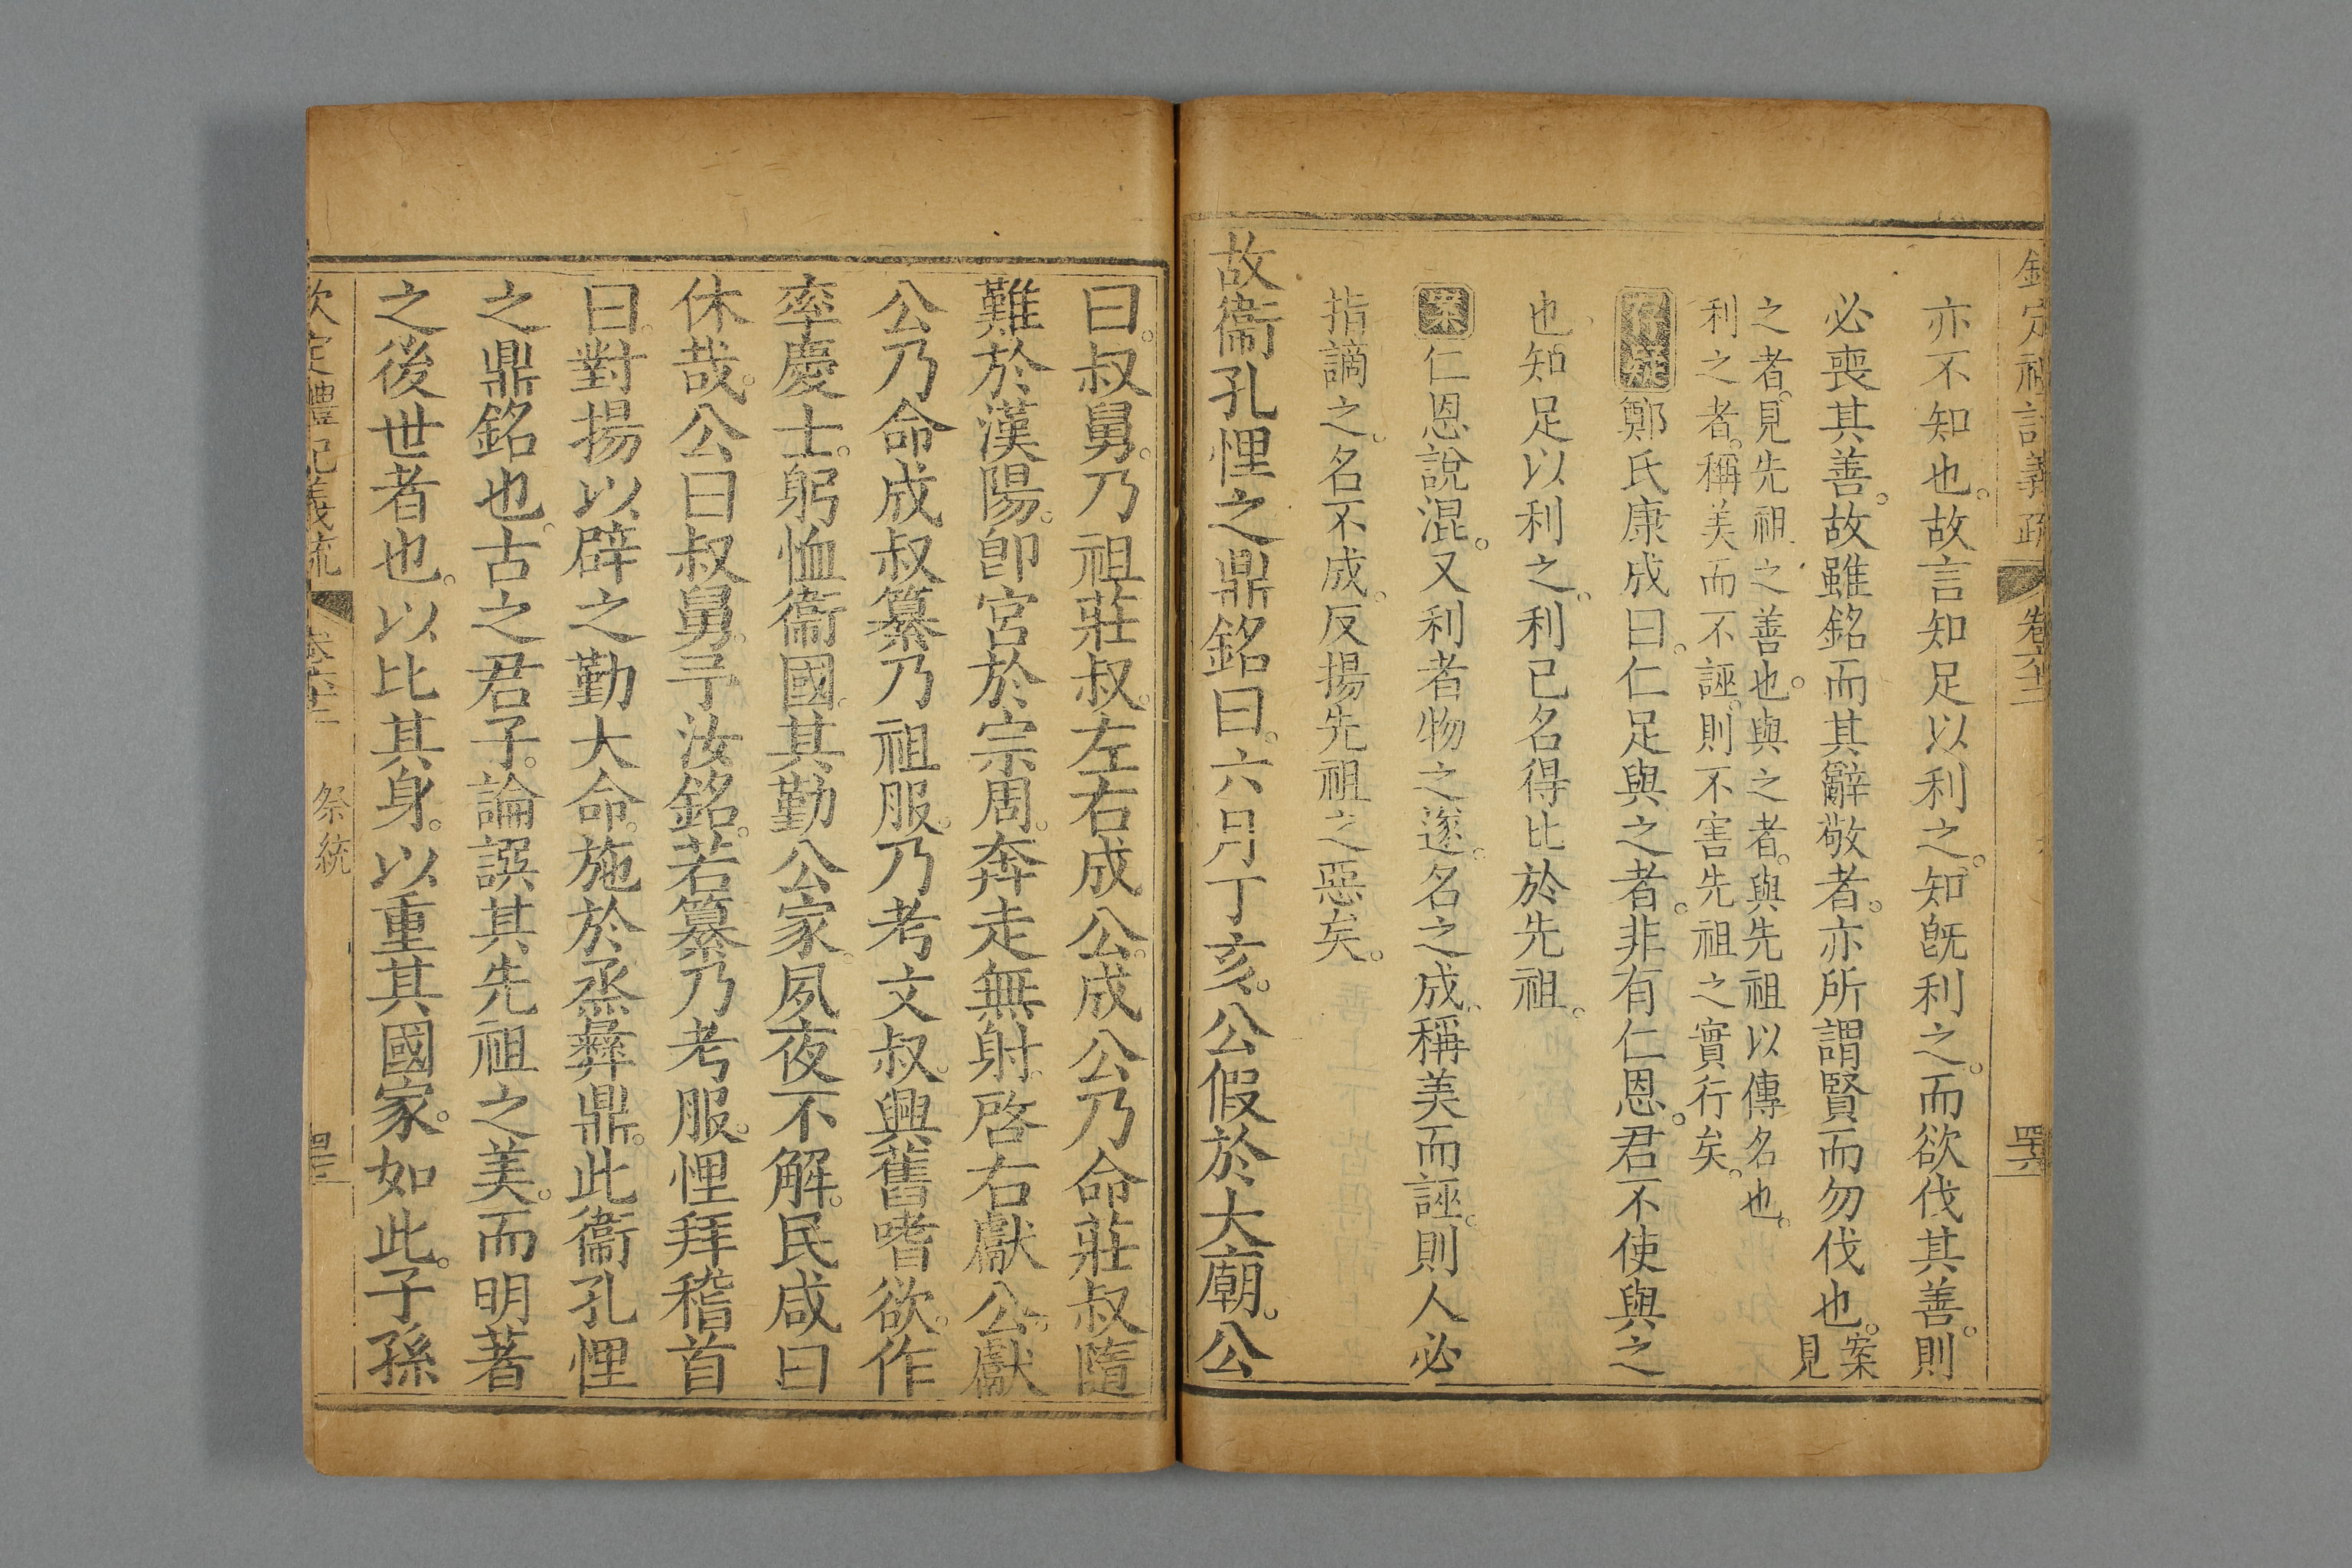 欽定禮記義疏 卷六十二
亦不知也。故言知足以利之。知旣利之。而欲伐其善。則
必喪其善。故雖銘而其辭敬者。亦所謂賢而勿伐也。案見
之者。見先祖之善也。與之者。與先祖以傳名也。
利之者。稱美而不誣。則不害先祖之實行矣。
存疑鄭氏康成曰。仁足與之者。非有仁恩。君不使與之
也。知足以利之。利己名得比於先祖。
案仁恩說混。又利者物之遂。名之成。稱美而誣。則人必
指謫之。名不成。反揚先祖之惡矣。
故衞孔悝之鼎銘曰。六月丁亥。公假於大廟。公
曰。叔舅。乃祖莊叔。左右成公。成公乃命莊叔隨
難於漢陽。卽宮於宗周。奔走無射。啓右獻公。獻
公乃命成叔纂乃祖服。乃考文叔。興舊嗜欲。作
率慶士。躬恤衞國。其勤公家。夙夜不解。民咸曰
休哉。公曰叔舅。予汝銘。若纂乃考服。悝拜稽首
曰。對揚以辟之。勤大命。施於烝彝鼎。此衞孔悝
之鼎銘也。古之君子。論譔其先祖之美。而明著
之後世者也。以比其身。以重其國家。如此。子孫
欽定禮記義疏 卷六十二 祭統